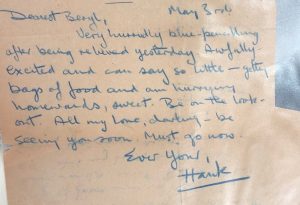 Dearest Beryl, May 3rd.
Very hurriedly blue-pencilling
after being relieved yesterday. Awfully
excited and can say so little - getting
bags of food and am hurrying
homewards, sweet. Be on the look-
out. All my love, darling - be
seeing you soon. Must go now.
Ever Yours,
Hank